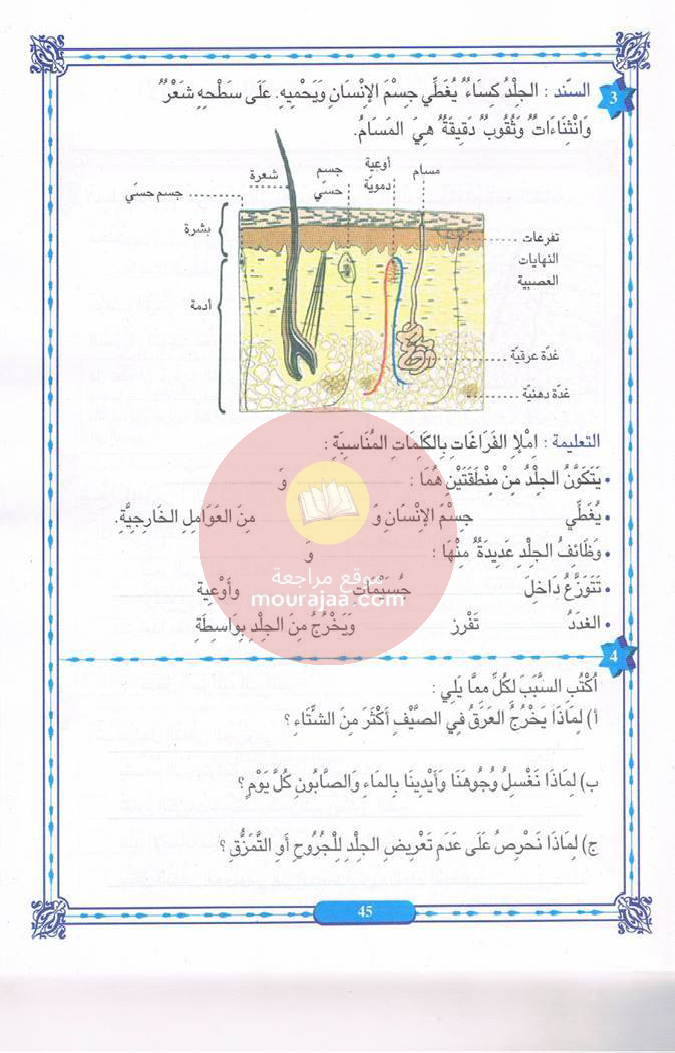 3
السّند : الجِلْدُ كِسَاءٌ يُغَطِّي جِسْمَ الإِنْسَانِ وَيَحْمِيهِ. عَلَى سَطْحِهِ شَعْرٌ
وَانْثِنَاءَاتٌ وَثُقُوبٌ دَقِيقَةٌ هِيَ المَسَامُ.
مسام
أوعية
دموية
جسم
حسّي
شعرة
جسم حسّي
بشرة
أدمة
تفرعات
النهايات
العصبية
غدّة عرقية
غدّة دهنية
التعليمة : اِمْلإِ الفَرَاغَاتِ بِالكَلِمَاتِ المُنَاسِبَةِ :
• يَتَكَوَّنُ الجِلْدُ مِنْ مِنْطَقَتَيْنِ هُمَا : وَ
• يُغَطِّي جِسْمَ الإِنْسَانِ وَ مِنَ العَوَامِلِ الخَارِجِيَّةِ.
• وَظَائِفُ الجِلْدِ عَدِيدَةٌ مِنْهَا : وَ
• تَتَوَزَّعُ دَاخِلَ جُسَيْمَاتِ وَأَوْعِيَة
• الغدَدُ تَفْرز وَيَخْرُجُ مِنَ الجِلْدِ بِوَاسِطَةِ
موقع مراجعة
mourajaa.com
4
اُكْتُبِ السَّبَبَ لِكُلِّ مِمَّا يَلِي :
أ) لِمَاذَا يَخْرُجُ العَرَقُ فِي الصَّيْفِ أَكْثَرَ مِنَ الشِّتَاءِ ؟
ب) لِمَاذَا نَغْسِلُ وُجُوهَنَا وَأَيْدِينَا بِالمَاءِ وَالصَّابُونِ كُلَّ يَوْمٍ ؟
ج) لِمَاذَا نَحْرِصُ عَلَى عَدَمِ تَعْرِيضِ الجِلْدِ لِلْجُرُوحِ أَوِ التَّمَزُّقِ ؟
45